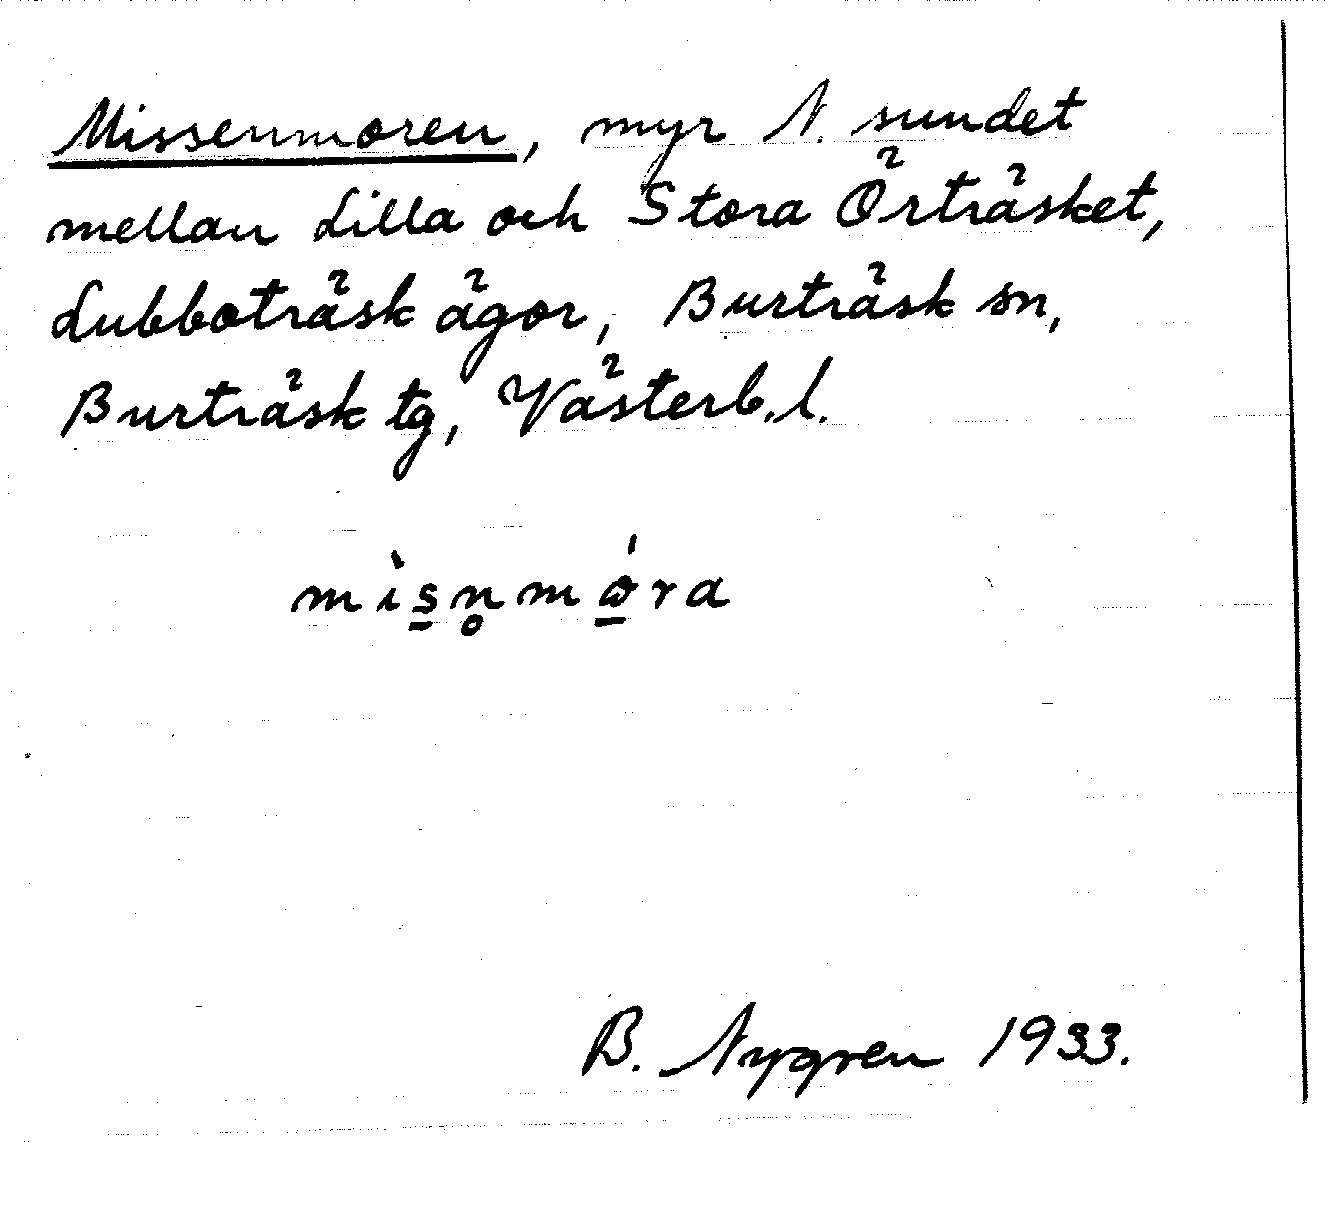 Missenmoren, myr N. sundet
mellan Lilla och Stora Örträsket,
Lubboträsk ägor, Burträsk sn,
Burträsk tg, Västerb. l.
mìs̠n̥mó̠ra
B. Nygren 1933.